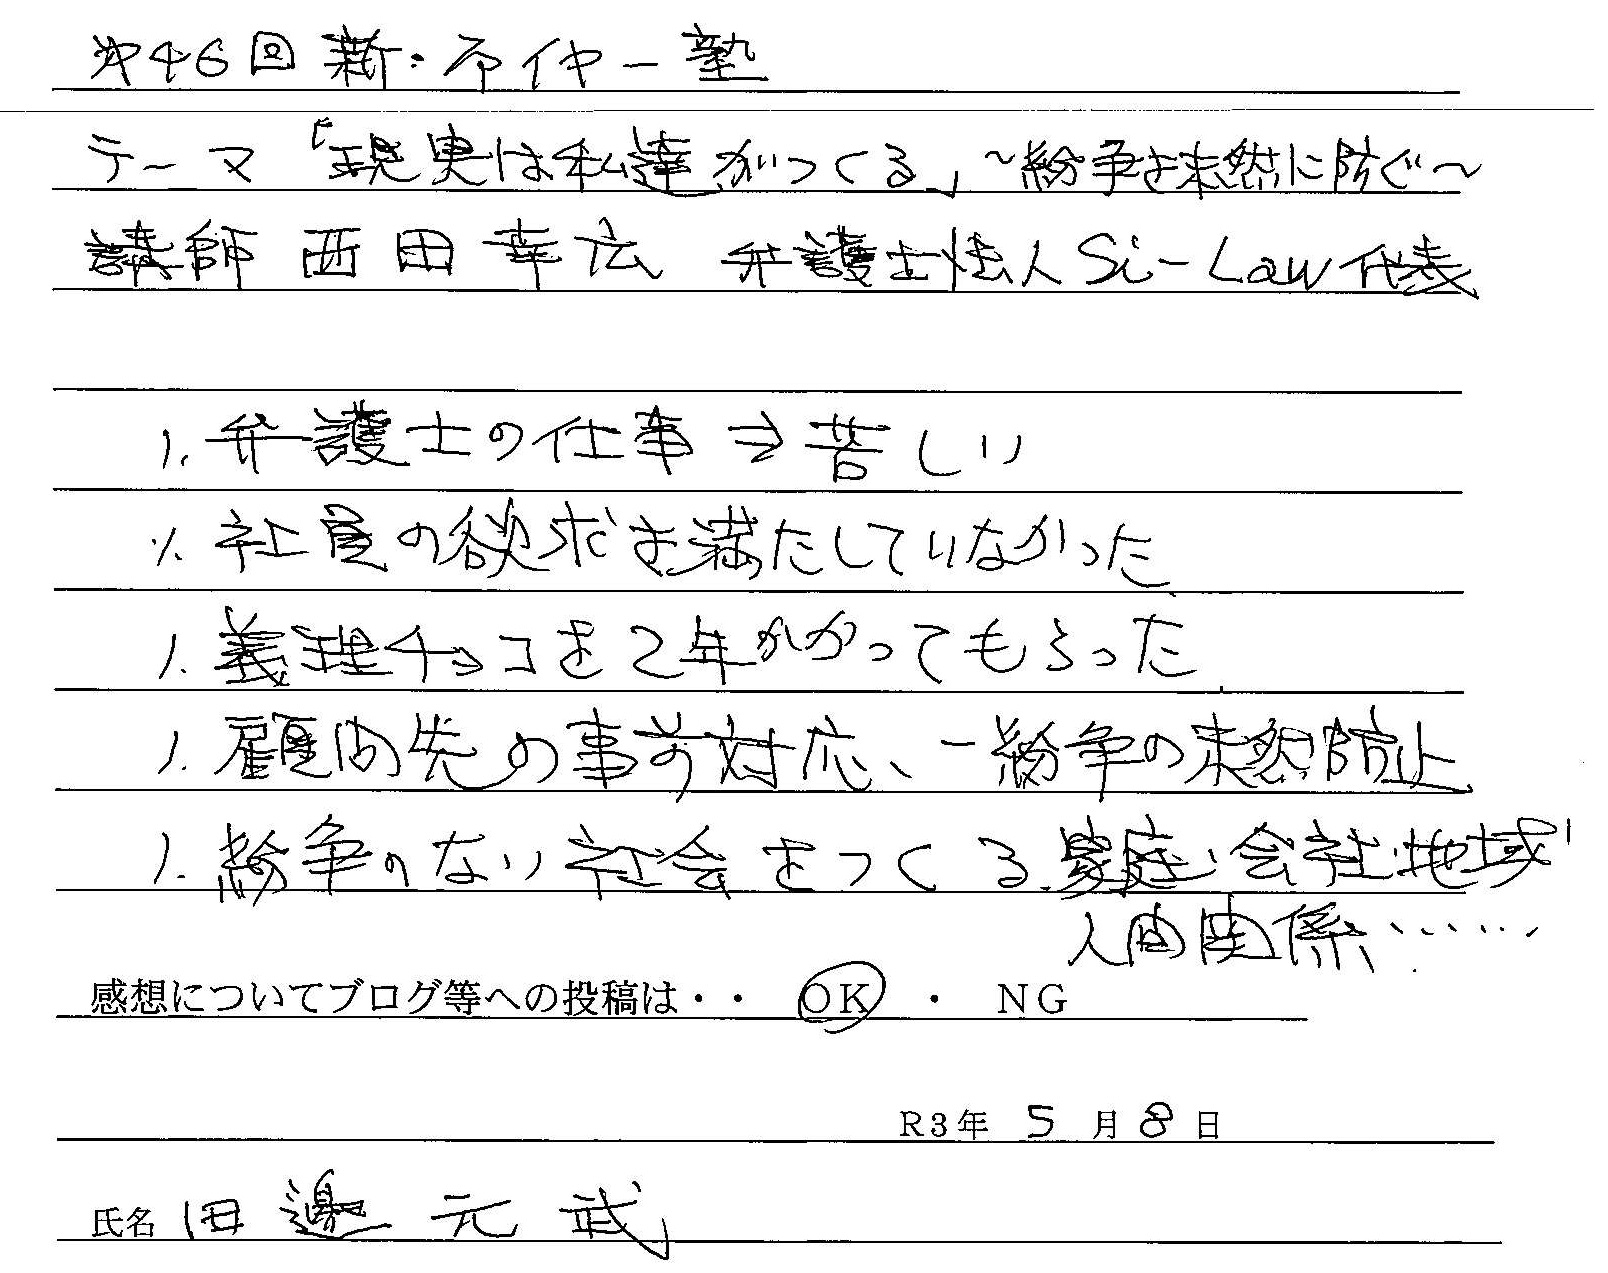 第46回 新・ネイヤー塾
テーマ「現実は私達がつくる」～紛争を未然に防ぐ～
講師 西田幸広 弁護士法人Si-Law代表
1. 弁護士の仕事⇒苦しい
1. 社員の欲求を満たしていなかった
1. 義理チョコを2年かかってもらった
1. 顧問先の事前対応、-紛争の未然防止
1. 紛争のない社会をつくる.家庭・会社・地域
人間関係……
感想についてブログ等への投稿は・・ OK ・ NG
R3年 5 月 8 日
氏名 田邊 元武